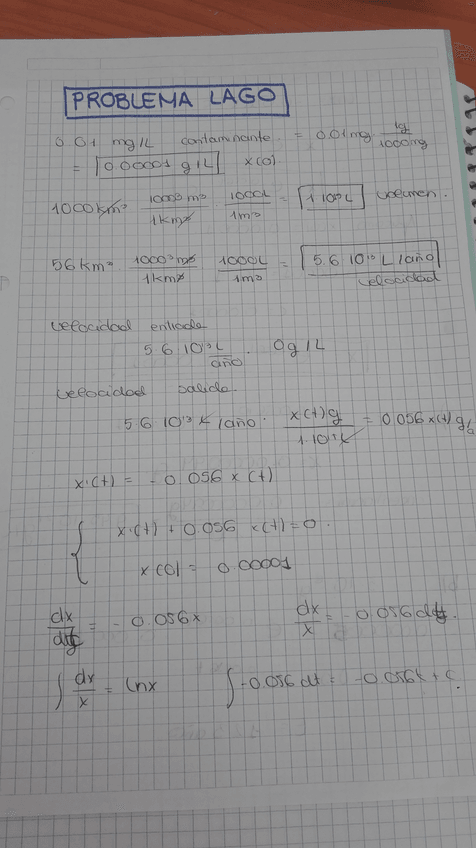 PROBLEMA LAGO
0.01 mg/L contaminante = 0.01 mg 1g/1000mg
= 0.00001 g/L x(0)
1000 km³ 1000³ m³/1 km³ 1000L/1m³ = L volumen.
56 km³ 1000³ m³/1 km³ 1000L/1m³ = L/año velocidad
velocidad entrada
L/año · 0g/L
velocidad salida
L/año · x(t)g/ = 0.056 x(t) g/a
x'(t) = - 0.056 x(t)
x'(t) + 0.056 x(t) = 0.
x(0) = 0.00001
dx/dt = - 0.056x dx/x = - 0.056 dt.
∫ dx/x = lnx ∫ -0.056 dt = -0.056t + C.